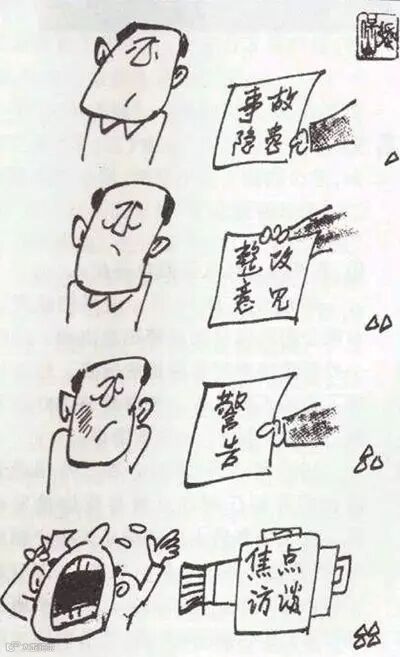 事故
隐患
整改
意见
警告
焦点
访谈